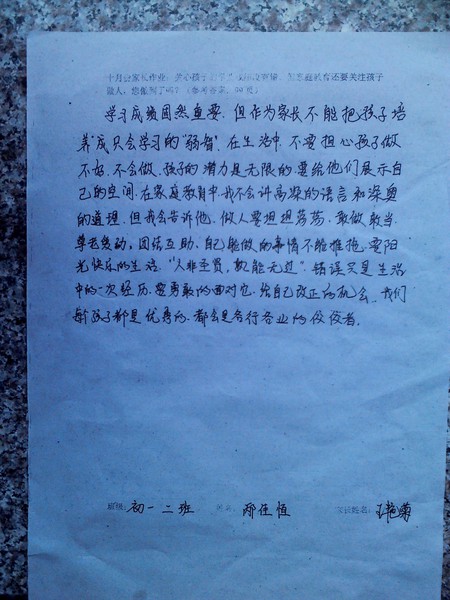 十月份家长作业：关心孩子的学习 家庭教育还要关注孩子
做人，您做到了吗？（参考答案，90页）
学习成绩固然重要，但作为家长不能把孩子培
养成只会学习的“弱智”，在生活中，不要担心孩子做
不好，不会做，孩子的潜力是无限的要给他们展示自
己的空间，在家庭教育中，我不会讲高深的语言和深奥
的道理，但我会告诉他，做人要坦坦荡荡，敢做敢当，
尊老爱幼，团结互助，自己能做的事情不能推拖，要阳
光快乐的生活，“人非圣贤，孰能无过”错误只是生活
中的一次经历，要勇敢的面对它，给自己改正的机会，我们
孩子都是优秀的，都会是各行各业的佼佼者。
班级：初一二班 姓名： 恒 家长姓名：王艳菊